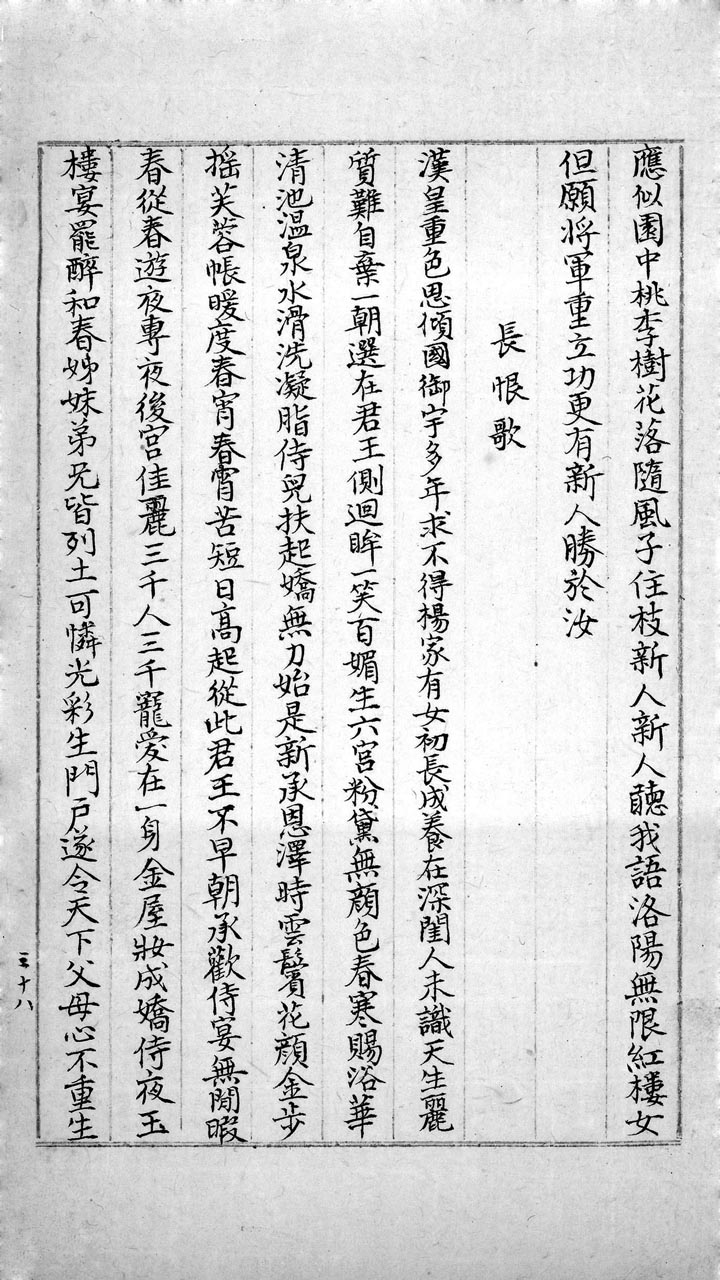 應似園中桃李樹花落隨風子住枝新人新人聽我語洛陽無限紅樓女
但願將軍重立功更有新人勝於汝
長恨歌
漢皇重色思傾國御宇多年求不得楊家有女初長成養在深閨人未識天生麗
質難自棄一朝選在君王側迴眸一笑百媚生六宮粉黛無顏色春寒賜浴華
清池温泉水滑洗凝脂侍兒扶起嬌無力始是新承恩澤時雲鬢花顏金步
搖芙蓉帳暖度春宵春宵苦短日高起從此君王不早朝承歡侍宴無閒暇
春從春遊夜專夜後宮佳麗三千人三千寵愛在一身金屋妝成嬌侍夜玉
樓宴罷醉和春姊妹弟兄皆列土可憐光彩生門戶遂令天下父母心不重生
三十八